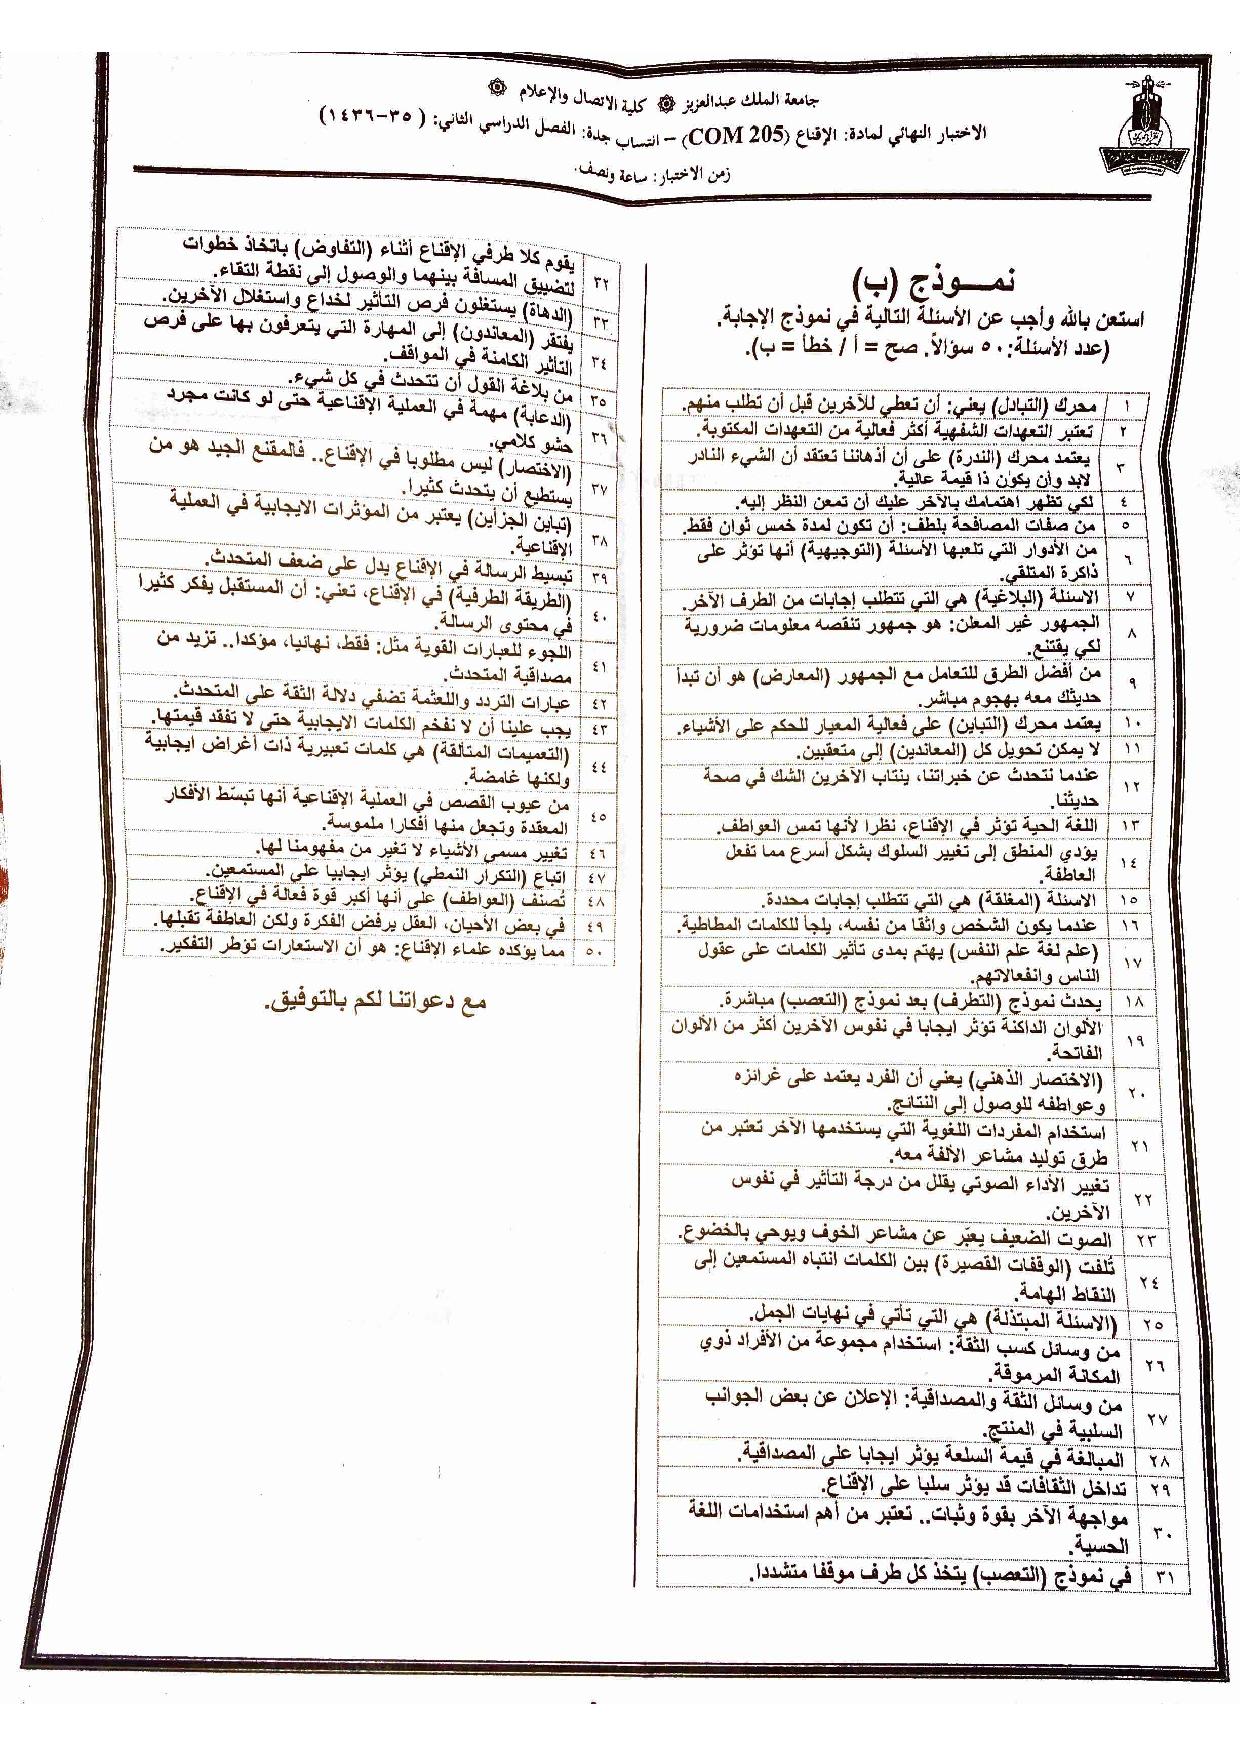 جامعة الملك عبدالعزيز ۞ كلية الاتصال والإعلام ۞
الاختبار النهائي لمادة: الإقناع (COM 205) – انتساب جدة: الفصل الدراسي الثاني: (٣٥-١٤٣٦)
زمن الاختبار: ساعة ونصف.
نمـــوذج (ب)
استعن بالله وأجب عن الأسئلة التالية في نموذج الإجابة.
(عدد الأسئلة: ٥٠ سؤالاً. صح = أ / خطأ = ب).
١ محرك (التبادل) يعني: أن تعطي للآخرين قبل أن تطلب منهم.
٢ تعتبر التعهدات الشفهية أكثر فعالية من التعهدات المكتوبة.
٣ يعتمد محرك (الندرة) على أن أذهاننا تعتقد أن الشيء النادر
لابد وأن يكون ذا قيمة عالية.
٤ لكي تظهر اهتمامك بالآخر عليك أن تمعن النظر إليه.
٥ من صفات المصافحة بلطف: أن تكون لمدة خمس ثوان فقط.
٦ من الأدوار التي تلعبها الأسئلة (التوجيهية) أنها تؤثر على
ذاكرة المتلقي.
٧ الاسئلة (البلاغية) هي التي تتطلب إجابات من الطرف الآخر.
٨ الجمهور غير المعلن: هو جمهور تنقصه معلومات ضرورية
لكي يقتنع.
٩ من أفضل الطرق للتعامل مع الجمهور (المعارض) هو أن تبدأ
حديثك معه بهجوم مباشر.
١٠ يعتمد محرك (التباين) على فعالية المعيار للحكم على الأشياء.
١١ لا يمكن تحويل كل (المعاندين) إلى متعقبين.
١٢ عندما نتحدث عن خبراتنا، ينتاب الآخرين الشك في صحة
حديثنا.
١٣ اللغة الحية تؤثر في الإقناع، نظرا لأنها تمس العواطف.
١٤ يؤدي المنطق إلى تغيير السلوك بشكل أسرع مما تفعل
العاطفة.
١٥ الاسئلة (المغلقة) هي التي تتطلب إجابات محددة.
١٦ عندما يكون الشخص واثقا من نفسه، يلجأ للكلمات المطاطية.
١٧ (علم لغة علم النفس) يهتم بمدى تأثير الكلمات على عقول
الناس وانفعالاتهم.
١٨ يحدث نموذج (التطرف) بعد نموذج (التعصب) مباشرة.
١٩ الألوان الداكنة تؤثر ايجابا في نفوس الآخرين أكثر من الألوان
الفاتحة.
٢٠ (الاختصار الذهني) يعني أن الفرد يعتمد على غرائزه
وعواطفه للوصول إلى النتائج.
٢١ استخدام المفردات اللغوية التي يستخدمها الآخر تعتبر من
طرق توليد مشاعر الألفة معه.
٢٢ تغيير الأداء الصوتي يقلل من درجة التأثير في نفوس
الآخرين.
٢٣ الصوت الضعيف يعبّر عن مشاعر الخوف ويوحي بالخضوع.
٢٤ تُلفت (الوقفات القصيرة) بين الكلمات انتباه المستمعين إلى
النقاط الهامة.
٢٥ (الاسئلة المبتذلة) هي التي تأتي في نهايات الجمل.
٢٦ من وسائل كسب الثقة: استخدام مجموعة من الأفراد ذوي
المكانة المرموقة.
٢٧ من وسائل الثقة والمصداقية: الإعلان عن بعض الجوانب
السلبية في المنتج.
٢٨ المبالغة في قيمة السلعة يؤثر ايجابا على المصداقية.
٢٩ تداخل الثقافات قد يؤثر سلبا على الإقناع.
٣٠ مواجهة الآخر بقوة وثبات.. تعتبر من أهم استخدامات اللغة
الحسية.
٣١ في نموذج (التعصب) يتخذ كل طرف موقفا متشددا.
٣٢ يقوم كلا طرفي الإقناع أثناء (التفاوض) باتخاذ خطوات
لتضييق المسافة بينهما والوصول إلى نقطة التقاء.
٣٣ (الدهاة) يستغلون فرص التأثير لخداع واستغلال الآخرين.
٣٤ يفتقر (المعاندون) إلى المهارة التي يتعرفون بها على فرص
التأثير الكامنة في المواقف.
٣٥ من بلاغة القول أن تتحدث في كل شيء.
٣٦ (الدعابة) مهمة في العملية الإقناعية حتى لو كانت مجرد
حشو كلامي.
٣٧ (الاختصار) ليس مطلوبا في الإقناع.. فالمقنع الجيد هو من
يستطيع أن يتحدث كثيرا.
٣٨ (تباين الجزأين) يعتبر من المؤثرات الايجابية في العملية
الإقناعية.
٣٩ تبسيط الرسالة في الإقناع يدل على ضعف المتحدث.
٤٠ (الطريقة الطرفية) في الإقناع، تعني: أن المستقبل يفكر كثيرا
في محتوى الرسالة.
٤١ اللجوء للعبارات القوية مثل: فقط، نهائيا، مؤكدا.. تزيد من
مصداقية المتحدث.
٤٢ عبارات التردد واللعثمة تضفي دلالة الثقة على المتحدث.
٤٣ يجب علينا أن لا نفخم الكلمات الايجابية حتى لا تفقد قيمتها.
٤٤ (التعميمات المتألقة) هي كلمات تعبيرية ذات أغراض ايجابية
ولكنها غامضة.
٤٥ من عيوب القصص في العملية الإقناعية أنها تبسّط الأفكار
المعقدة وتجعل منها أفكارا ملموسة.
٤٦ تغيير مسمى الأشياء لا تغير من مفهومنا لها.
٤٧ اتباع (التكرار النمطي) يؤثر ايجابيا على المستمعين.
٤٨ تُصنف (العواطف) على أنها أكبر قوة فعالة في الإقناع.
٤٩ في بعض الأحيان، العقل يرفض الفكرة ولكن العاطفة تقبلها.
٥٠ مما يؤكده علماء الإقناع: هو أن الاستعارات تؤطر التفكير.
مع دعواتنا لكم بالتوفيق.